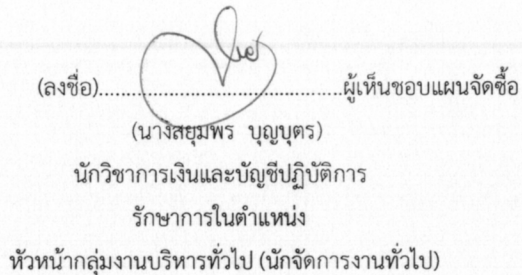 (ลงชื่อ)..........................................ผู้เห็นชอบแผนจัดซื้อ
(นางสยุมพร บุญบุตร)
นักวิชาการเงินและบัญชีปฏิบัติการ
รักษาการในตำแหน่ง
หัวหน้ากลุ่มงานบริหารทั่วไป (นักจัดการงานทั่วไป)